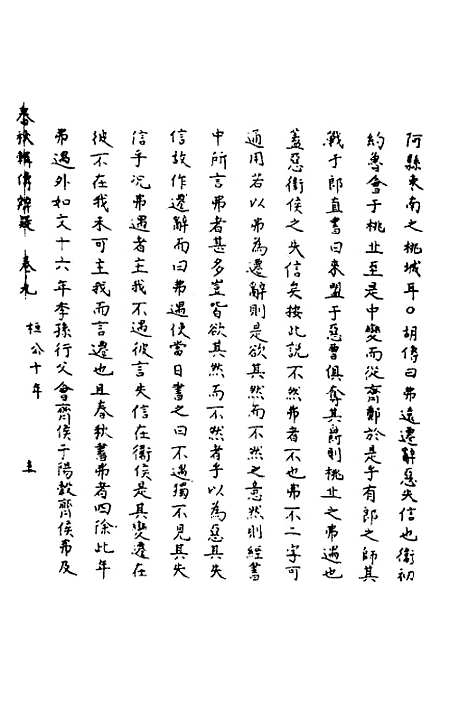 阿縣東南之桃城耳○胡傳曰弗遇遷辭惡失信也衛初
約魯會于桃丘至是中變而從齊鄭於是乎有郎之師其
戰于郎直書曰來盟于惡曹俱奪其爵則桃丘之弗遇也
蓋惡衛侯之失信矣按此說不然弗者不也弗不二字可
通用若以弗為遷辭則是欲其然而不然之意然則經書
中所言弗者甚多豈皆欲其然而不然者乎以為惡其失
信故作遷辭而曰弗遇使當日書之曰不遇獨不見其失
信乎況弗遇者主我不遇彼言失信在衛侯是其變遷在
彼不在我未可主我而言遷也且春秋書弗者四除此年
弗遇外如文十六年季孫行父會齊侯于陽穀齊侯弗及
春秋輯傳辨疑 卷九 桓公十年